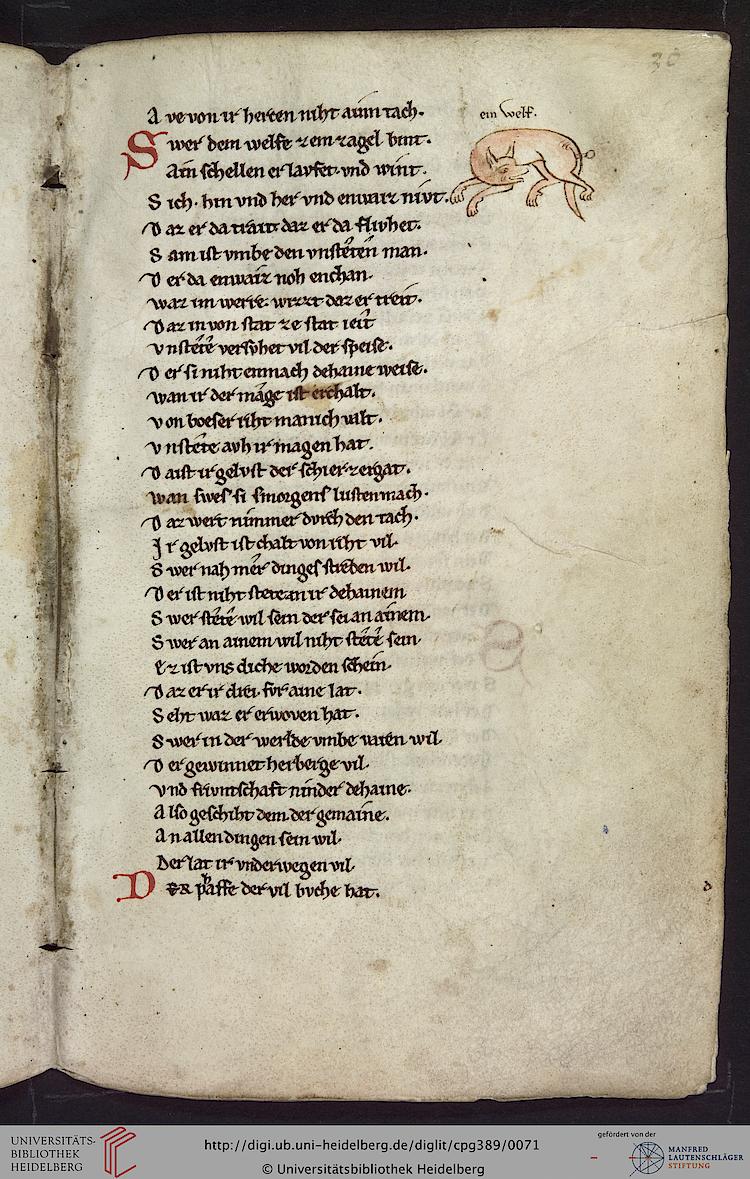 30
A ve von ir herten niht ainn tach.
ein welf.
S wer dem welfe zem zagel bint.
Ain schellen er laufet vnd wint.
S ich. hin vnd her vnd enwaiz niut.
D az er da trait daz er da flivhet.
S am ist vmbe den vnsteten man.
D er da enwaiz noh enchan.
waz im werre. wizzt daz er treit.
D az in von stat ze stat ieit
v nstete versvhet vil der speise.
D er si niht enmach dehaine weise.
wan ir der mage ist erchalt.
v on boeser riht manich valt.
v nstete avh ir magen hat.
D aist ir gelvst der schier zergat.
wan swes si smorgens lusten mach.
D az wert nimmer dvrch den tach.
I r gelvst ist chalt von riht vil.
S wer nah mer dinges streben wil.
D er ist niht stete an ir dehainem
S wer stete wil sein der sei an ainem.
S wer an ainem wil niht stete sein.
Ez ist vns diche worden schein.
D az er ir driv. fvr aine lat.
S eht waz er erwoven hat.
S wer in der werlde vmbe varen wil.
D er gewinnet herberge vil.
v nd frivntschaft ninder dehaine.
A lso geschiht dem. der gemaine.
A n allen dingen sein wil.
Der lat ir vnderwegen vil.
D er phaffe der vil bvche hat.
UNIVERSITÄTS-
BIBLIOTHEK
HEIDELBERG
http://digi.ub.uni-heidelberg.de/diglit/cpg389/0071
© Universitätsbibliothek Heidelberg
gefördert von der
MANFRED
LAUTENSCHLÄGER
STIFTUNG